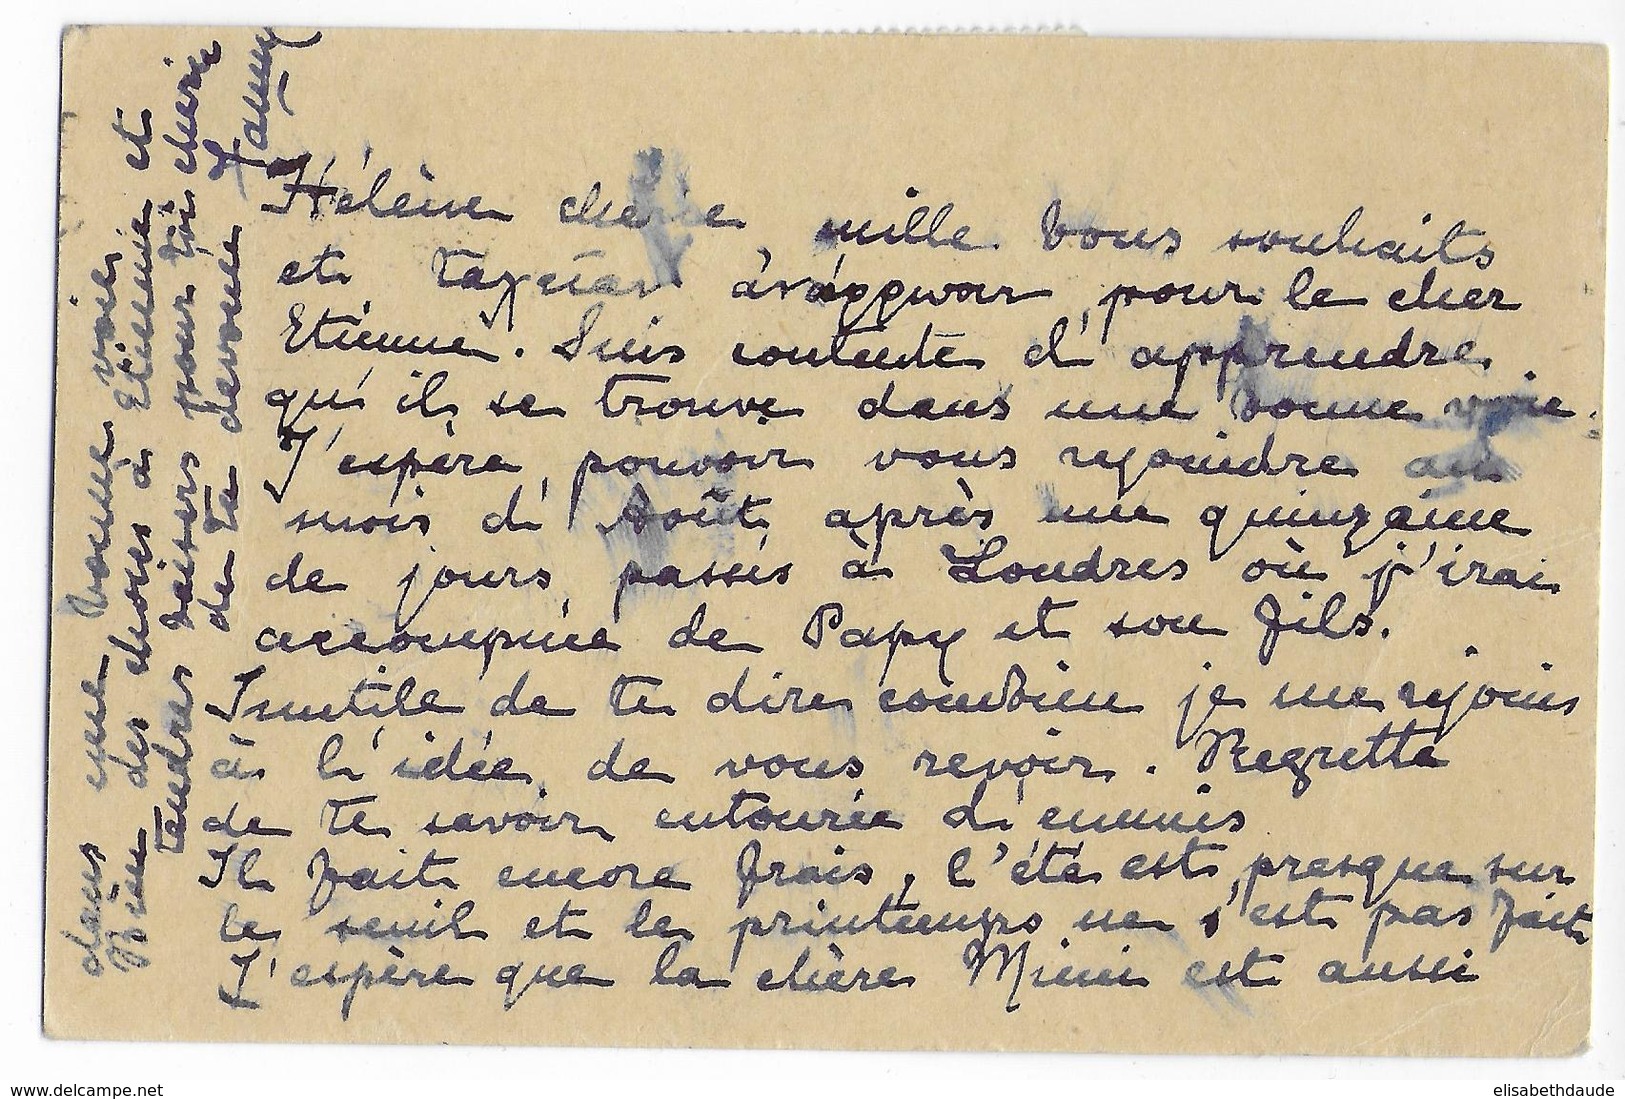 Hélène chérie, mille bons souhaits
et à pour le cher
Etienne. Suis contente d'apprendre
qu'il se trouve dans une bonne voie.
J'espère pouvoir vous rejoindre au
mois d'Août après une quinzaine
de jours passés à Londres où j'irai
accompnée de Papy et son fils.
Inutile de te dire combien je me rejouis
à l'idée de vous revoir. Regrette
de te savoir entourée d'ennuis
Il fait encore frais, l'été est presque sur
le seuil et le printemps ne s'est pas fait
J'espère que la chère Mimi est aussi
dans une bonne voie.
Bien des choses à Etienne et
tendres baisers pour toi chérie
de ta dévouée
Fanny
delcampe.net
elisabethdaude